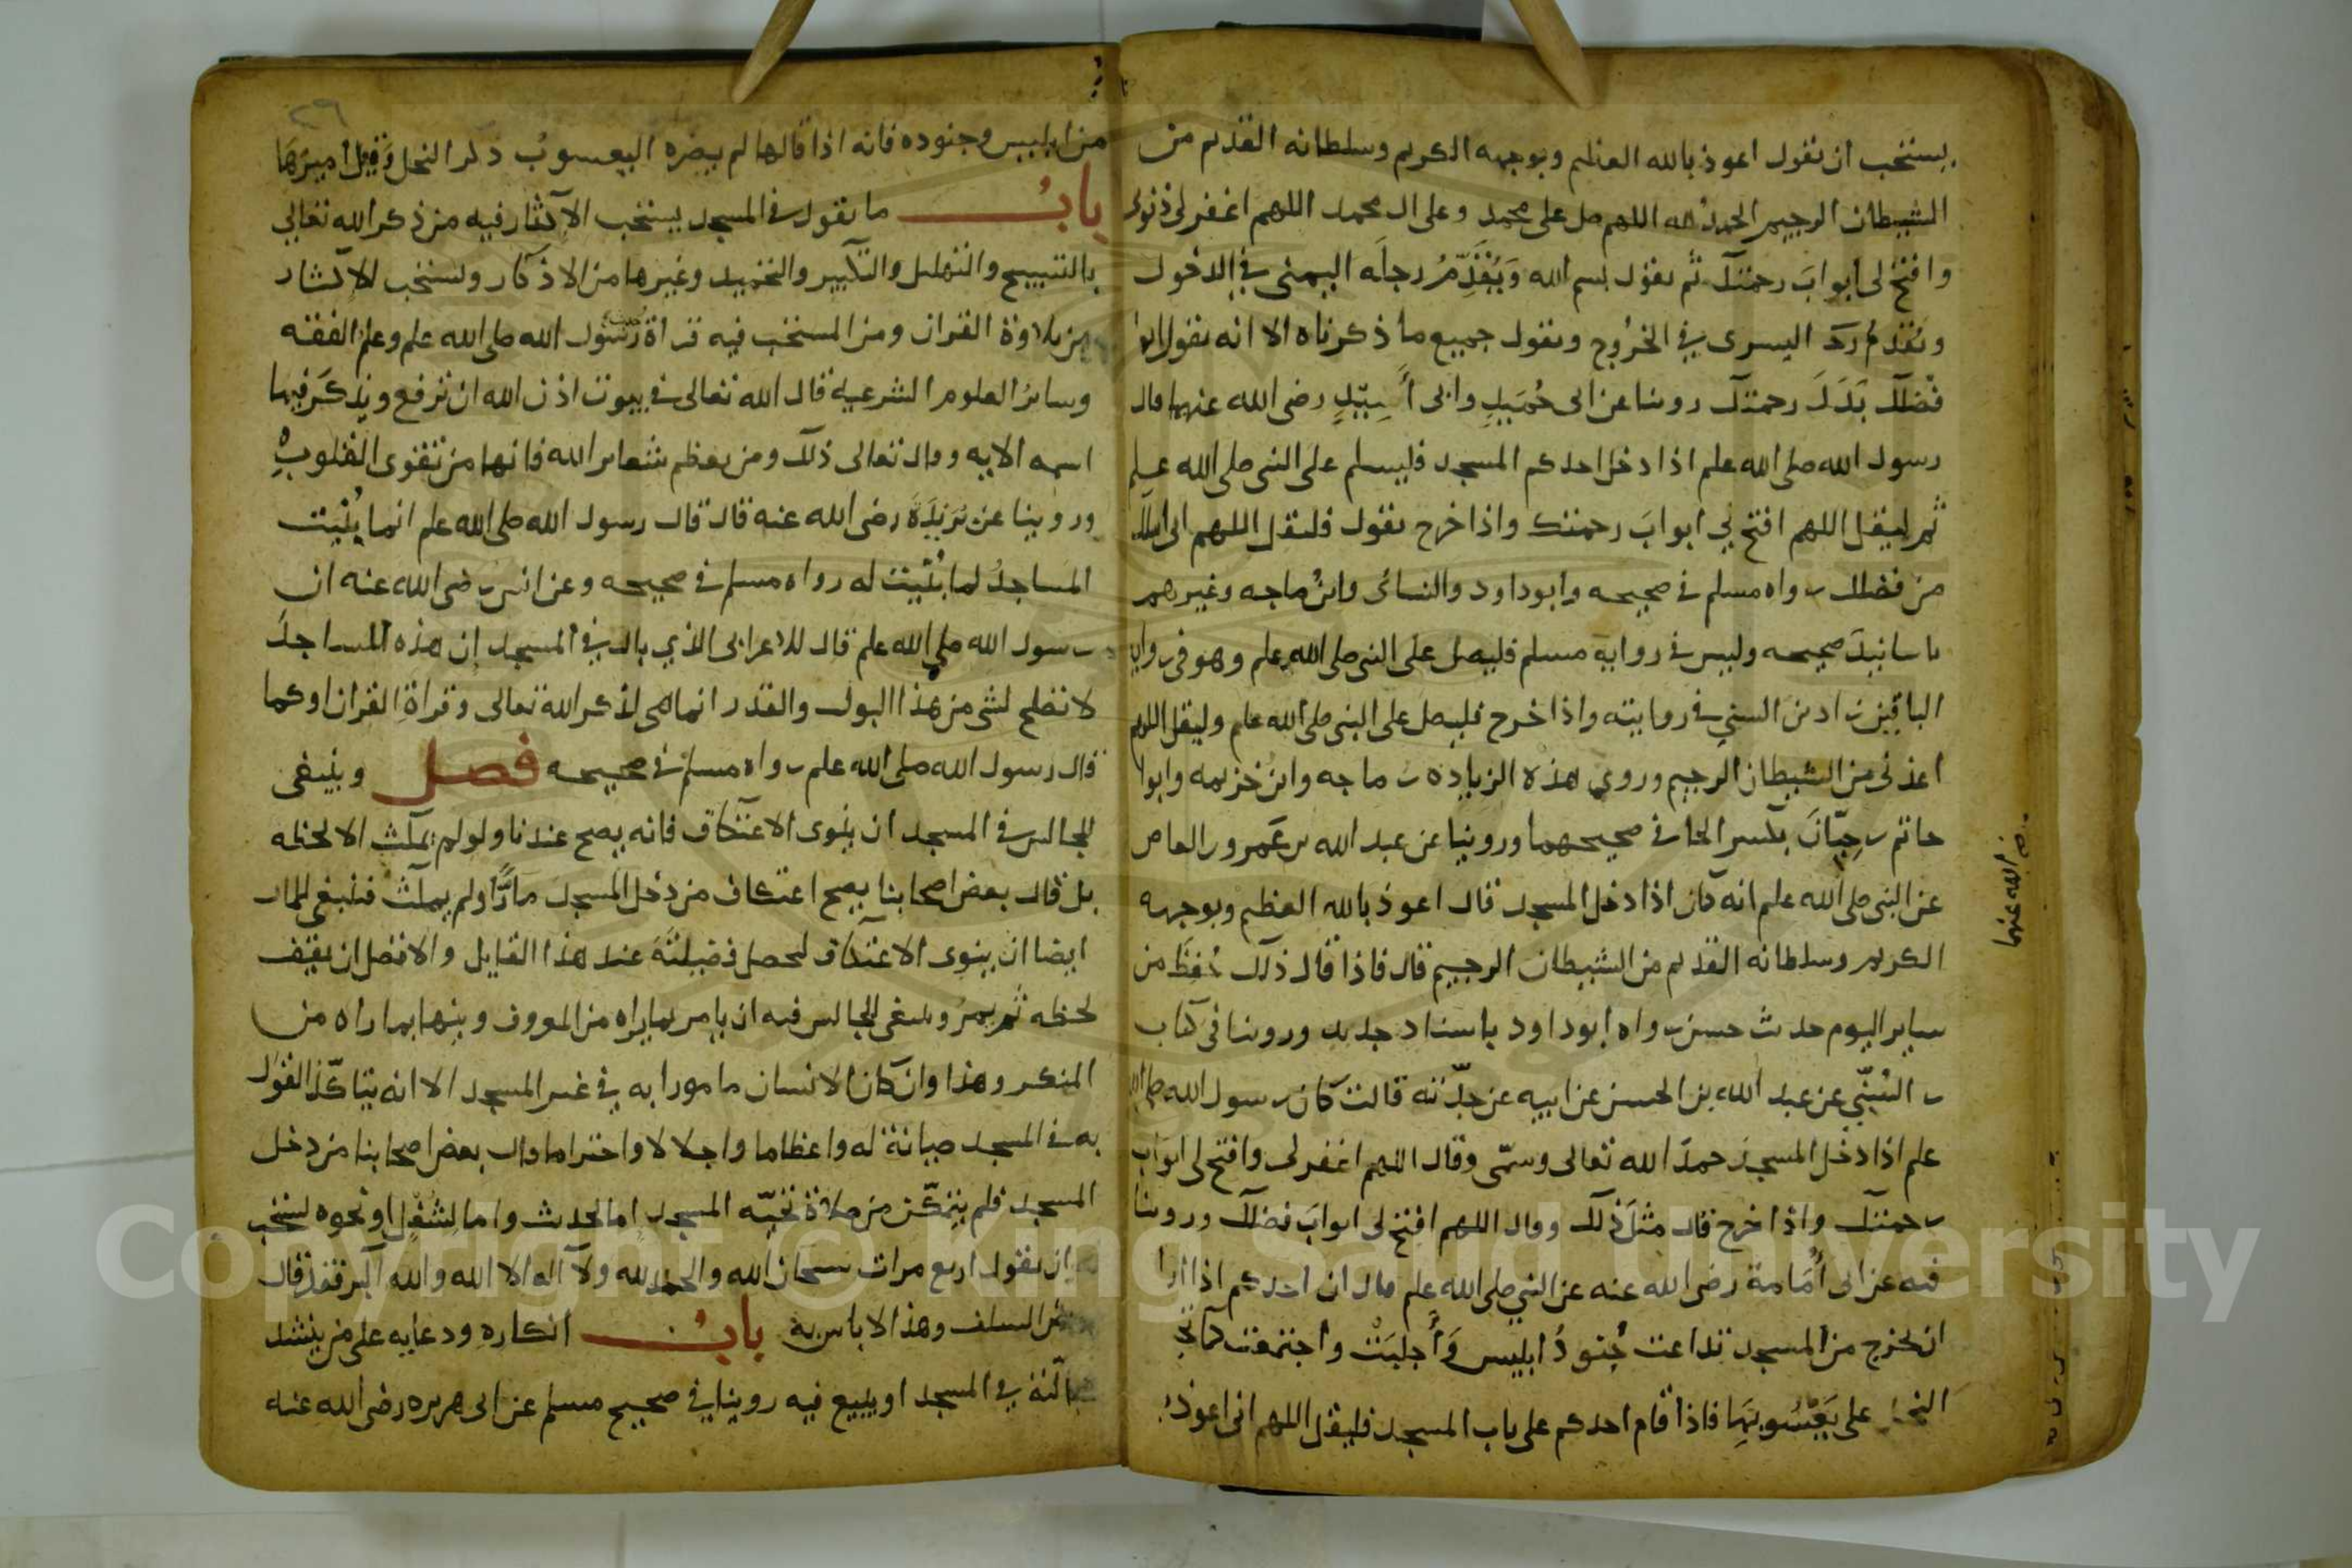 يستحب ان يقول اعوذ بالله العظيم وبوجهه الكريم وسلطانه القديم من
الشيطان الرجيم الحمد لله اللهم صل على محمد وعلى ال محمد اللهم اغفر لي ذنوبي
وافتح لي ابوابَ رحمتك ثم يقول بسم الله وَيُقَدِّمُ رجلَه اليمنى في الدخول
ويُقدم اليسرى في الخرُوج ويقول جميع ما ذكرناه الا انه يقول ابوا
فضلك بَدَلَ رحمتك روينا عن ابى حُمَيدٍ وابى أُسيدٍ رضى الله عنهما قال
رسول الله صلى الله علم اذا دخل احدكم المسجد فليسلم على النبى صلى الله علم
ثم ليقل اللهم افتح لي ابوابَ رحمتك واذا خرج يقول فليقل اللهم انى اسلك
من فضلك رواه مسلم في صحيحه وابو داود والنسائى وابنُ ماجه وغيرهم
باسانيدَ صحيحه وليس في رواية مسلم فليصل على النبى صلى الله علم وهو في رواية
الباقين زاد بن السني في روايته واذا خرج فليصل على النبى صلى الله علم وليقل اللهم
اعذنى من الشيطان الرجيم وروي هذه الزياده بن ماجه وابن خزيمه وابوا
حاتم بن حِبّانَ بكسر الحا في صحيحهما وروينا عن عبد الله بن عَمرو بن العاص
رضى الله عنهما
عن النبى صلى الله علم انه كان اذا دخل المسجد قال اعوذ بالله العظيم وبوجهه
الكريم وسلطانه القديم من الشيطان الرجيم قال فاذا قال ذلك حُفِظَ من
ساير اليوم حديث حسن رواه ابو داود باسناد جديد وروينا في كتاب
بن السُنّي عن عبد الله بن الحسن عن ابيه عن جدّته قالت كان رسول الله صلى الله
علم اذا دخل المسجدَ حمدَ الله تعالى وسمّى وقال اللهم اغفر لي وافتح لي ابوابَ
رحمتك واذا خرج قال مثلَ ذلك وقال اللهم افتح لي ابوابَ فضلك وروينا
فيه عن ابى أُمَامة رضى الله عنه عن النبي صلى الله علم قال ان احدكم اذا ارا
ان يخرج من المسجد تداعت جُنودُ ابليس وَأجلبَتْ واجتمعت كما تج
النحل على يَعْسُوبِهَا فاذا قام احدكم على باب المسجد فليقل اللهم انى اعوذ بك
٢٩
من ابليس وجنوده فانه اذا قالها لم يضره اليعسوبُ ذكر النحل وَقيل اميرُهَا
بابُ ما يقول في المسجد يستحب الاكثار فيه من ذكر الله تعالي
بالتسبيح والتهليل والتكبير والتحميد وغيرها من الاذكار ويستحب الاكثار
من تلاوة القران ومن المستحب فيه قراة حديث رسُول الله صلى الله علم وعلم الفقه
وسائرُ العلوم الشرعية قال الله تعالى في بيوت اذن الله ان ترفع ويذكَر فيها
اسمه الايه وقال تعالى ذلك ومن يعظم شعاير الله فانها من تقوى القلوب
وروينا عن بُريدَةَ رضى الله عنه قال قال رسول الله صلى الله علم انما بُنيت
المساجدُ لما بُنيت له رواه مسلم في صحيحه وعن انس رضى الله عنه ان
رسول الله صلى الله علم قال للاعرابى الذي بال في المسجد اِن هذه المساجدَ
لا تصلح لشى من هذا البول والقذر انما هى لذكر الله تعالى وقراةِ القران اوكما
قال رسول الله صلى الله علم رواه مسلم في صحيحه فصل وينبغى
للجالس في المسجد ان ينوى الاعتكاف فانه يصح عندنا ولو لم يمكث الا لحظه
بل قال بعض اصحابنا يصح اعتكاف من دخل المسجد مَارًّا ولم يمكث فينبغى للمار
ايضا ان ينوى الاعتكاف لتحصل فضيلته عند هذا القايل والافضل ان يقف
لحظه ثم يمرُ وينبغى للجالس فيه ان يامر بما يراه من المعروف وينها بما راه من
المنكر وهذا وان كان الانسان مامورا به في غير المسجد الا انه يتاكّد القول
به في المسجد صيانة له واعظاما واجلالا واحتراما وقال بعض اصحابنا من دخل
المسجد فلم يتمكّن من صلاة تحيّه المسجد اما لحدث واما لِشُغْلٍ او نحوه يستحب
ان يقول اربع مرات سبحان الله والحمد لله ولا اله الا الله والله اكبر فقد قال
السلف وهذا لا باس به بابُ انكاره ودعايه على من ينشد
ضالّة في المسجد او يبيع فيه روينا في صحيح مسلم عن ابى هريره رضى الله عنه
Copyright © King Saud University